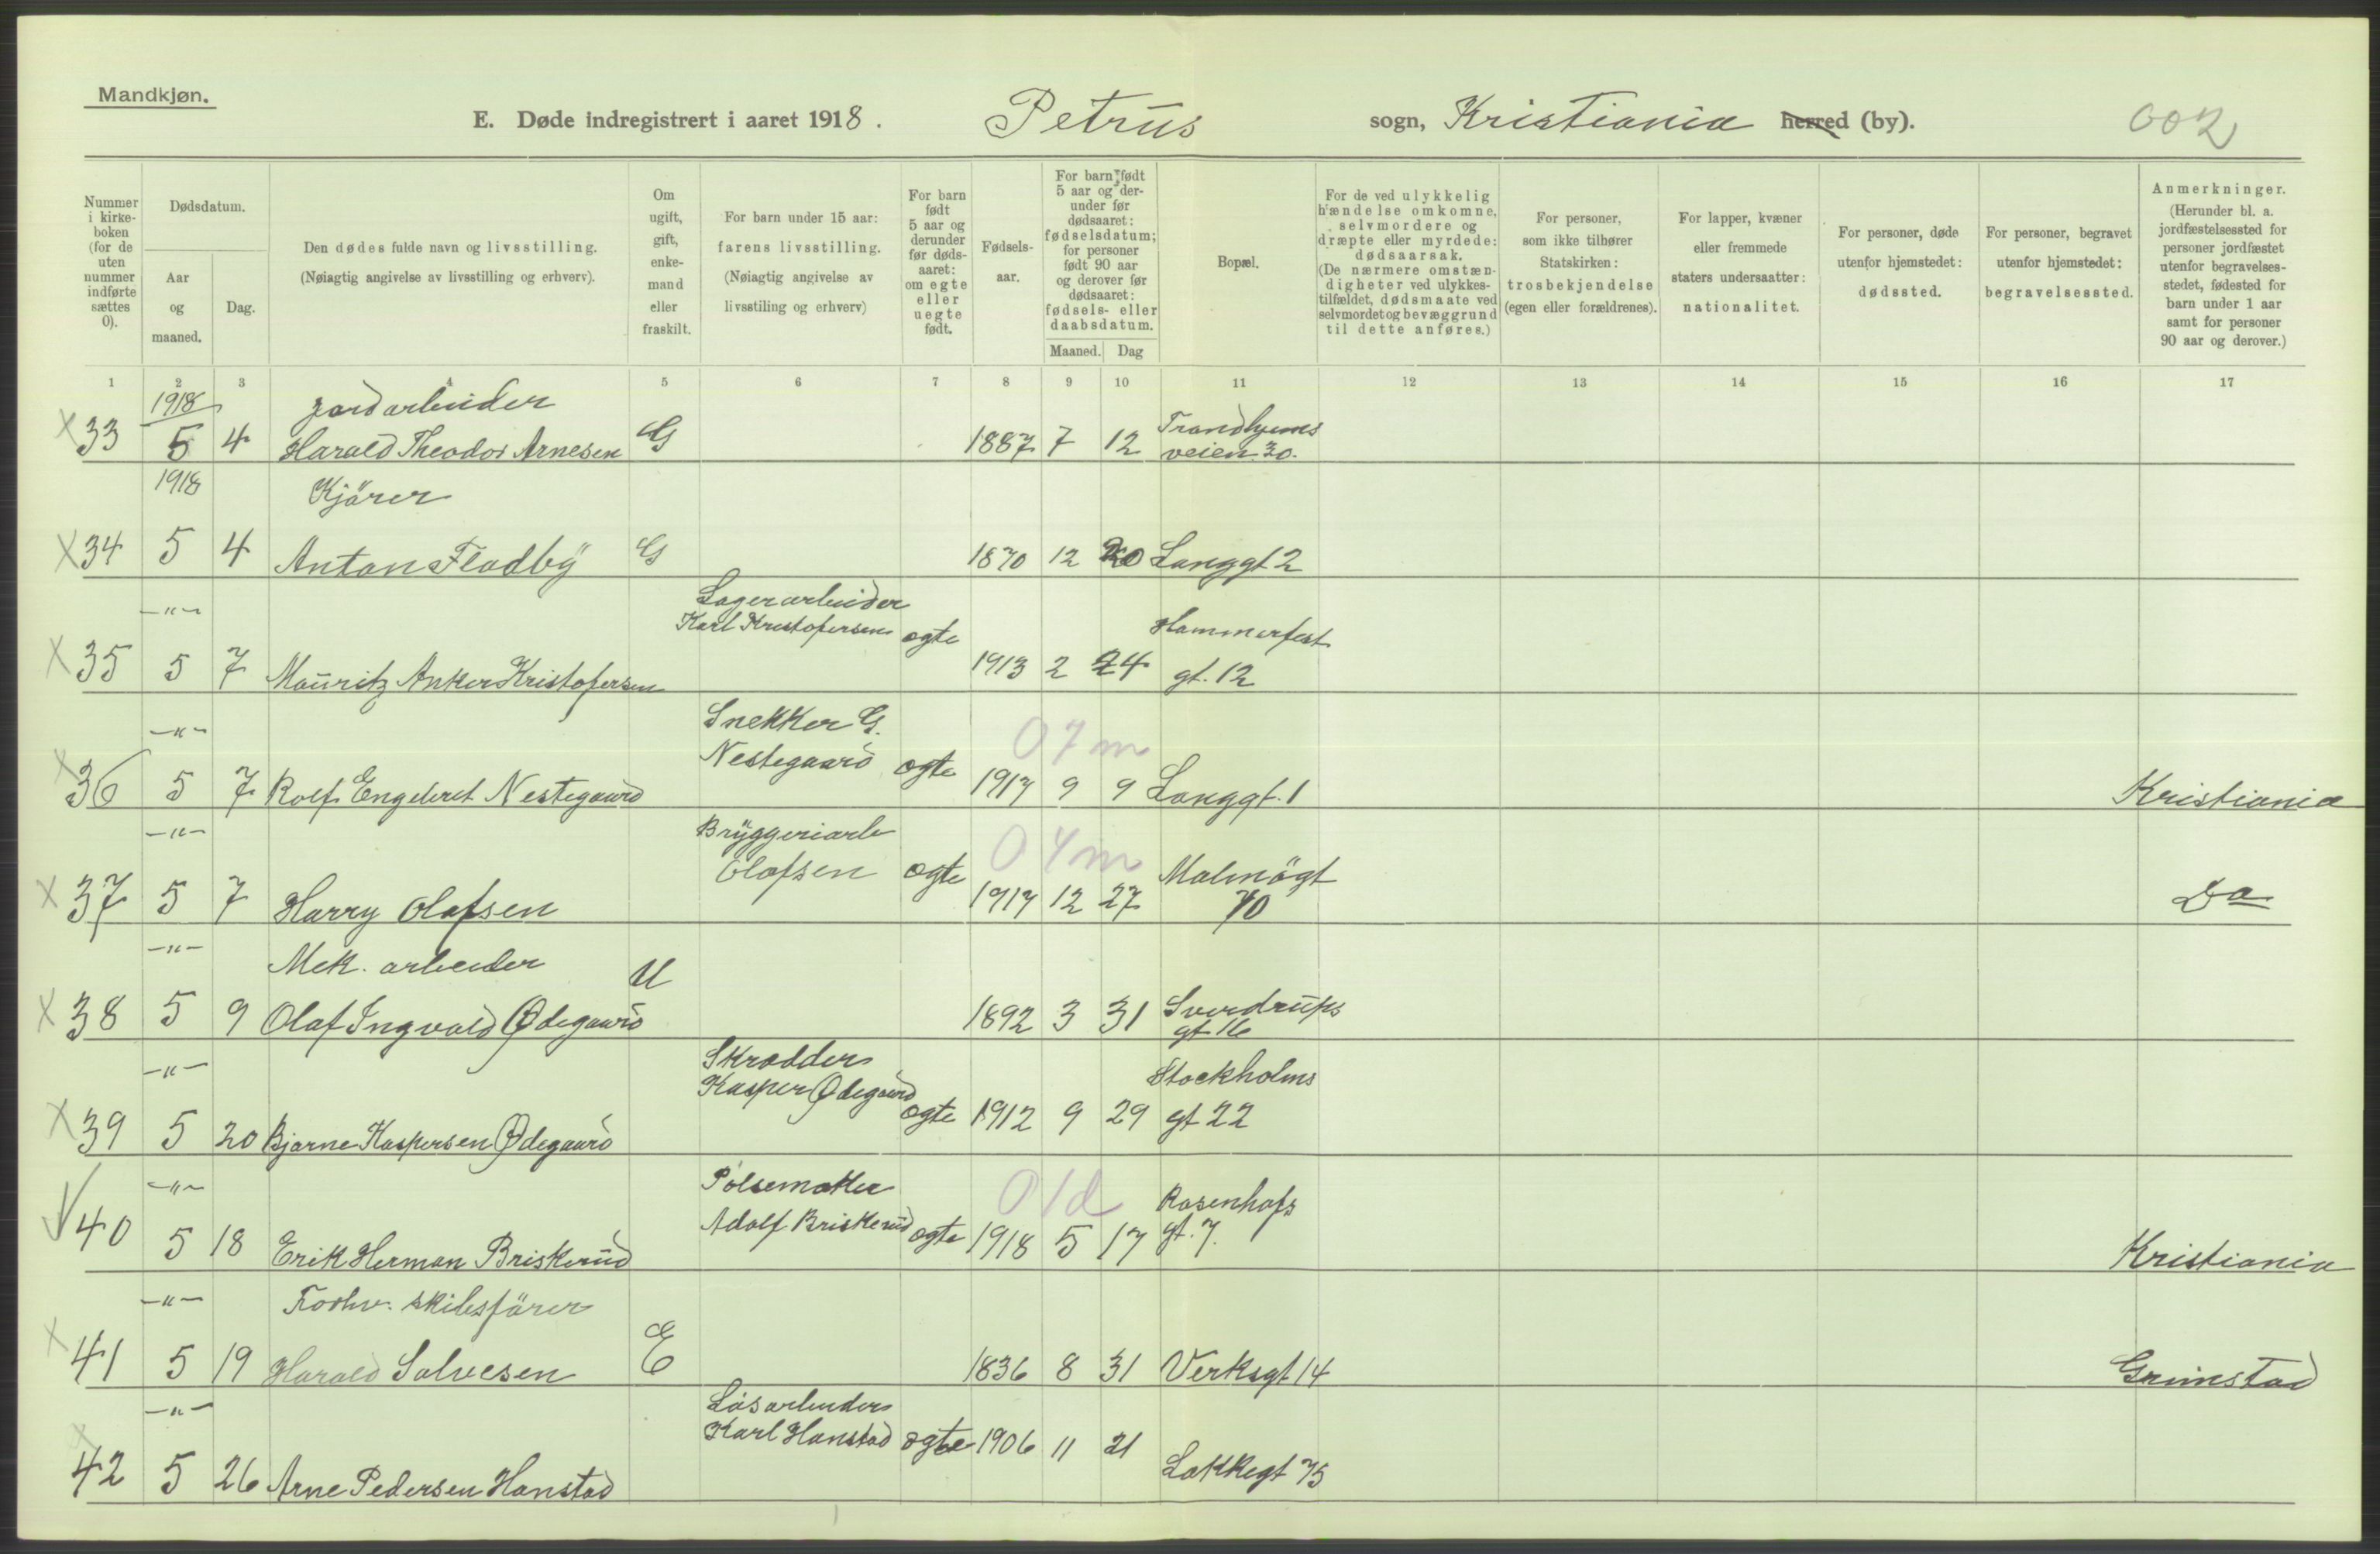 Mandkjøn.
E. Døde indregistrert i aaret 1918. Petrus sogn, Kristiania herred (by). 002
Nummer i kirke-boken (for de uten nummer indførte sættes 0).
Dødsdatum.
Aar og maaned.
Dag.
Den dødes fulde navn og livsstilling.
(Nøiagtig angivelse av livsstilling og erhverv).
Om ugift, gift, enke-mand eller fraskilt.
For barn under 15 aar:
farens livsstilling.
(Nøiagtig angivelse av
livsstiling og erhverv)
For barn født 5 aar og derunder før døds-aaret: om egte eller uegte født.
Fødsels-aar.
For barn født 5 aar og der-under før dødsaaret: fødselsdatum; for personer født 90 aar og derover før dødsaaret: fødsels- eller daabsdatum.
Maaned. Dag
Bopæl.
For de ved ulykkelig hændelse omkomne, selvmordere og dræpte eller myrdede: dødsaarsak. (De nærmere omstæn-digheter ved ulykkes-tilfældet, dødsmaate ved selvmordet og bevæggrund til dette anføres.)
For personer, som ikke tilhører Statskirken: trosbekjendelse (egen eller forældrenes).
For lapper, kvæner eller fremmede staters undersaatter: nationalitet.
For personer, døde utenfor hjemstedet: dødssted.
For personer, begravet utenfor hjemstedet: begravelsessted.
Anmerkninger.
(Herunder bl. a. jordfæstelsessted for personer jordfæstet utenfor begravelses-stedet, fødested for barn under 1 aar samt for personer 90 aar og derover.)
1 2 3 4 5 6 7 8 9 10 11 12 13 14 15 16 17
1918 Jordarbeider Trondhjems
x 33 5 4 Harald Theodor Arnesen G 1887 7 12 veien 30.
1918 Kjörer
x 34 5 4 Anton Fladby G 1870 12 20 Langgt 2
—"— Lagerarbeider
Karl Kristofersen ogte Hammerfest
x 35 5 7 Mauritz Anker Kristofersen 1913 2 24 gt. 12
—"— Snekker G.
Nestegaard ogte 07m
x 36 5 7 Rolf Engebret Nestegaard 1917 9 9 Langgt. 1 Kristiania
—"— Bryggeriarb
Olafsen ogte 04m Malmögt
x 37 5 7 Harry Olafsen 1917 12 27 70 Do
—"— Mek. arbeider
x 38 5 9 Olaf Ingvald Ødegaard U 1892 3 31 Sverdrups
gt 16
—"— Skrædder
Kasper Ødegaard Stockholms
x 39 5 20 Bjarne Kaspersen Ødegaard ogte 1912 9 29 gt 22
—"— Pölsemaker 01d Rosenhofs
Adolf Briskerud
40 5 18 Erik Herman Briskerud ogte 1918 5 17 gt. 7. Kristiania
—"— Forhv. skibsförer
x 41 5 19 Harald Salvesen E 1836 8 31 Verksgt 14 Grimstad
—"— Lösarbeider
Karl Hanstad ogte 1906 11 21
x 42 5 26 Arne Pedersen Hanstad Lakkegt 75